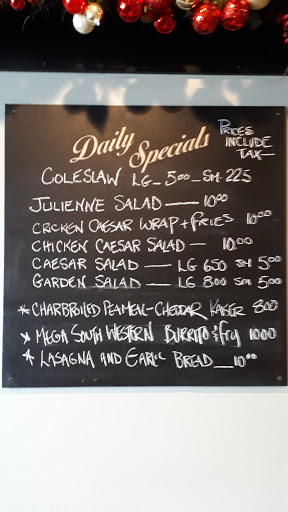 Daily Specials
PRICES
INCLUDE
TAX—
COLESLAW LG - 5.00 - SM 225
JULIENNE SALAD —— 10.00
CRCKEN CAESAR WRAP + FRIES 10.00
CHICKEN CAESAR SALAD — 10.00
CAESAR SALAD —— LG 650 SM 5.00
GARDEN SALAD —— LG 8.00 SM 5.00
* CHARBROILED PEAMEAL-CHEDDAR KAISER 8.00
* MEGA SOUTH WESTERN BURRITO & fry 10.00
* LASAGNA AND EARLIC BREAD __ 10.00